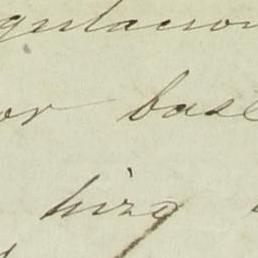 gulacion
or base
hizo